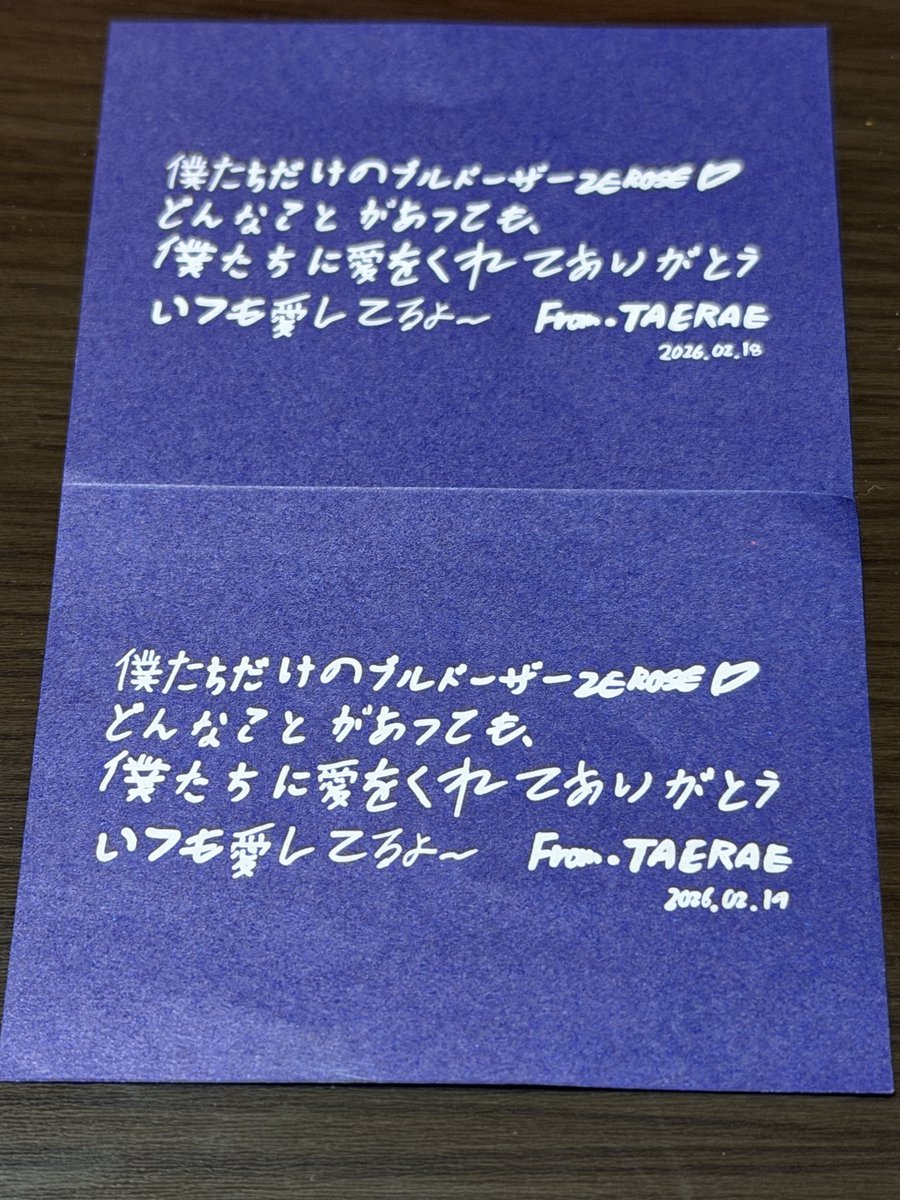 僕たちだけのブルドーザーZEROSE♡
どんなことがあっても、
僕たちに愛をくれてありがとう
いつも愛してるよ〜 From.TAERAE
2026.02.18
僕たちだけのブルドーザーZEROSE♡
どんなことがあっても、
僕たちに愛をくれてありがとう
いつも愛してるよ〜 From.TAERAE
2026.02.19